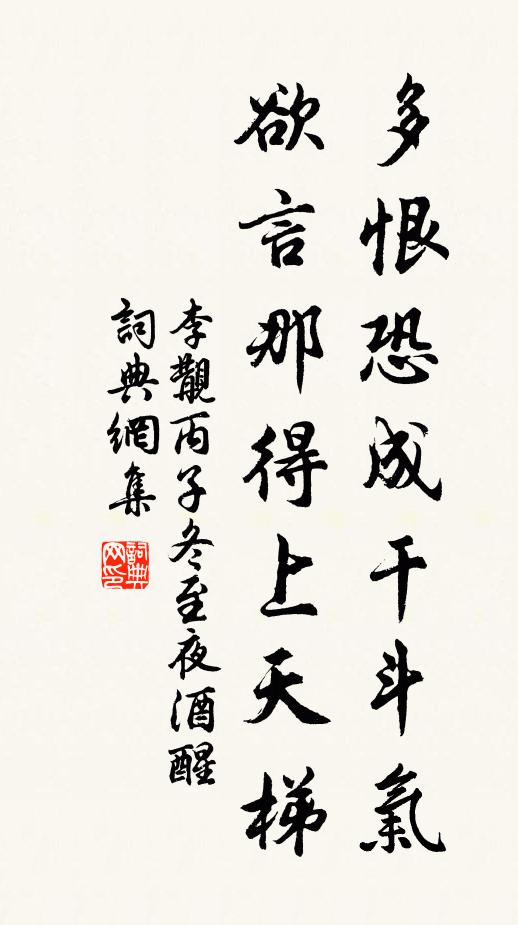 多恨恐成干斗氣
欲言那得上天梯
李觀丙子冬至夜酒醒
詞典網集
詞典网印